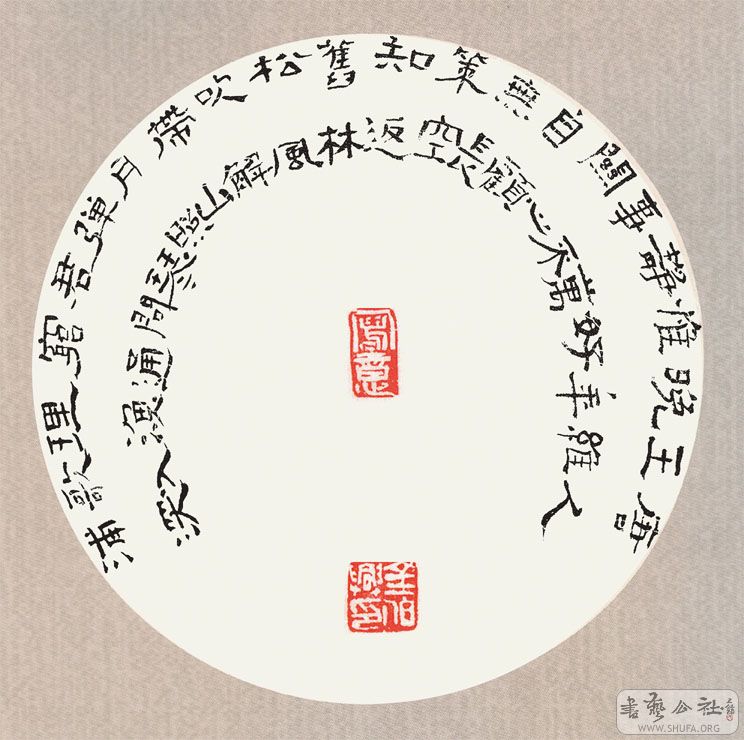 唐人
王維
晚年
惟好
靜萬
事不
關心
自顧
無長
策空
知返
舊林
松風
吹解
帶山
月照
彈琴
君問
窮通
理漁
歌入
浦深
書藝公社
WWW.SHUFA.ORG